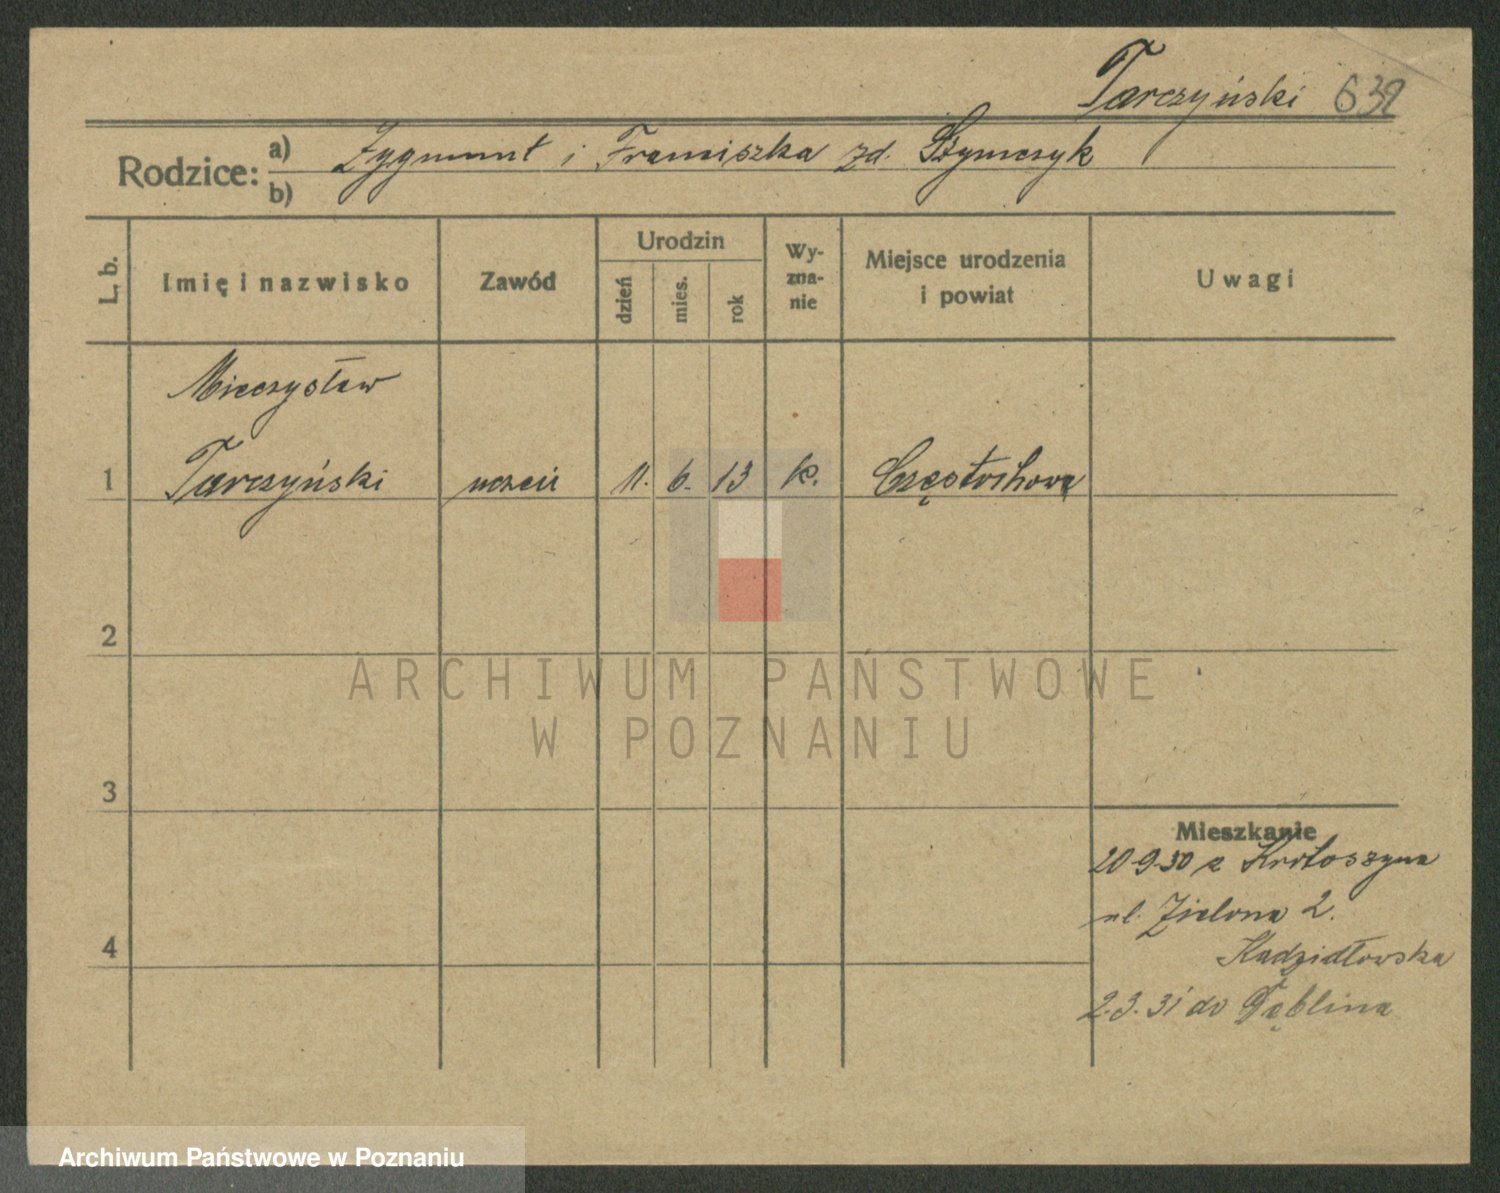 Tarczyński 639
Rodzice: a) Zygmunt i Franciszka zd. Szymczyk
b)
L. b.
Imię i nazwisko
Zawód
Urodzin
dzień
mies.
rok
Wy-
zna-
nie
Miejsce urodzenia
i powiat
Uwagi
Mieczysław
1 Tarczyński uczeń 11. 6. 13 k. Częstochowa
2
ARCHIWUM PAŃSTWOWE
W POZNANIU
3
Mieszkanie
20-9-30 z Krotoszyna
ul. Zielona 2.
4
Kadzidłowska
2.3.31 do Dęblina
Archiwum Państwowe w Poznaniu